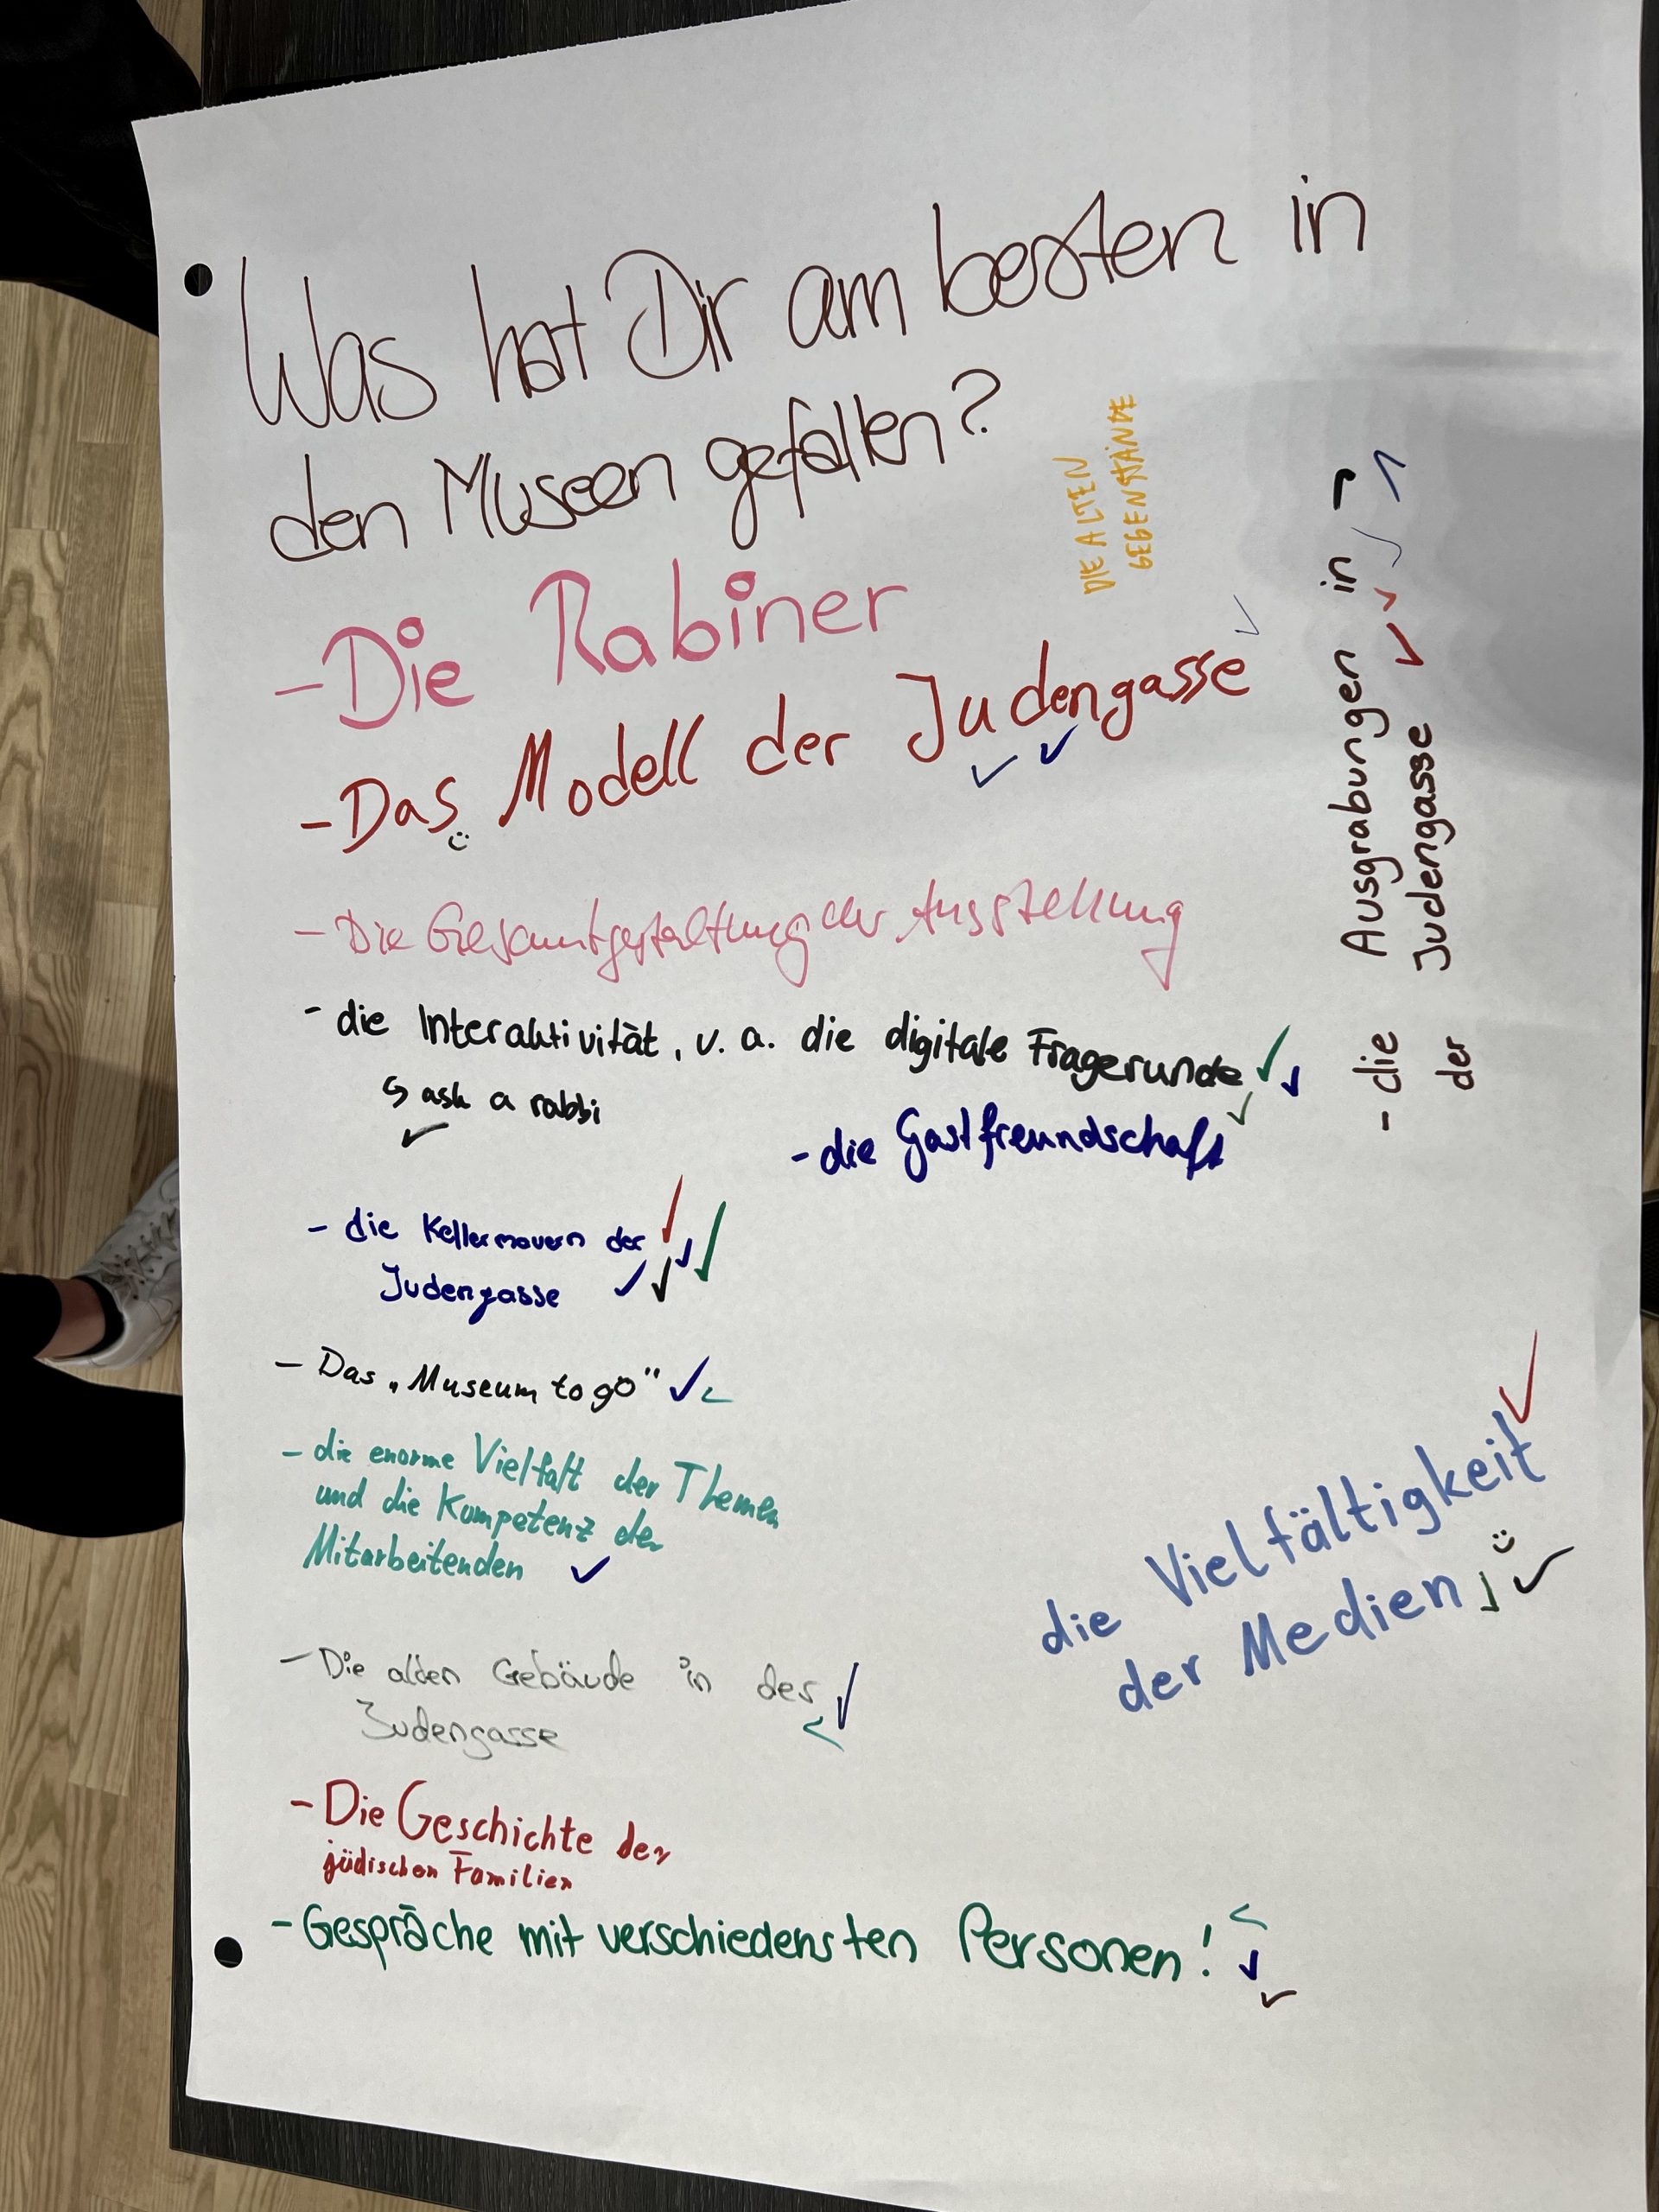 Was hat Dir am besten in
den Museen gefallen?
DIE ALTEN
GEGENSTÄNDE
- Die Rabiner
- Das Modell der Judengasse
- Die Gesamtgestaltung der Ausstellung
- die Interaktivität, v. a. die digitale Fragerunde
↳ ask a rabbi
- die Gastfreundschaft
- die Kellermauern der
Judengasse
- Das „Museum to go"
- die enorme Vielfalt der Themen
und die Kompetenz der
Mitarbeitenden
- Die alten Gebäude in der
Judengasse
- Die Geschichte der
jüdischen Familien
- Gespräche mit verschiedensten Personen!
- die Ausgrabungen in
der Judengasse
die Vielfältigkeit
der Medien